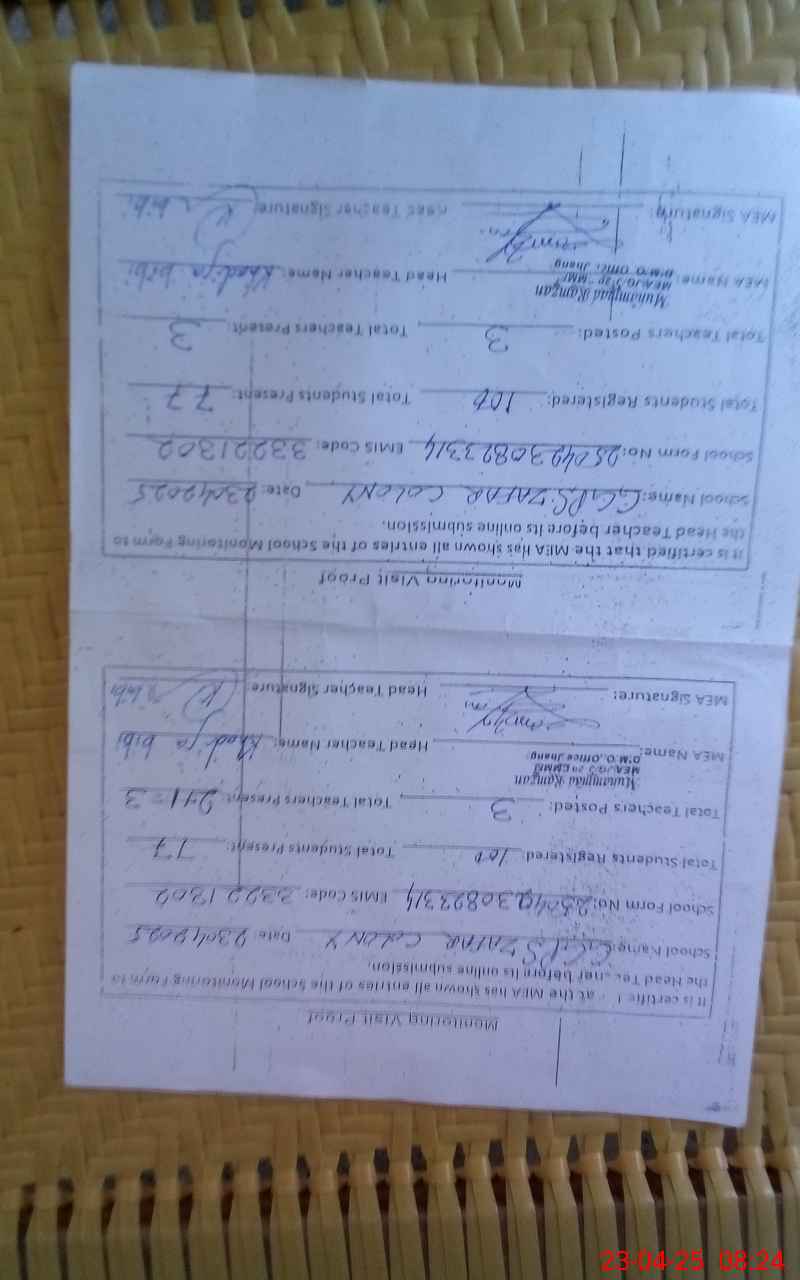 Monitoring Visit Proof
It is certifie at the MEA has shown all entries of the School Monitoring Form to
the Head Teacher before its online submission.
School Name: G.G.P.S ZAFAR COLONY Date: 23042025
School Form No: 2504230823314 EMIS Code: 33221302
Total Students Registered: 100 Total Students Present: 77
Total Teachers Posted: 3 Total Teachers Present: 2+1=3
MEA Name: Muhammad Ramzan Head Teacher Name: Khadija bibi
D.M.O. Office Jhang
MEA Signature: Head Teacher Signature: K bibi
Monitoring Visit Proof
It is certified that the MEA has shown all entries of the School Monitoring Form to
the Head Teacher before its online submission.
School Name: G.G.P.S ZAFAR COLONY Date: 23042025
School Form No: 2504230823314 EMIS Code: 33221302
Total Students Registered: 100 Total Students Present: 77
Total Teachers Posted: 3 Total Teachers Present: 3
MEA Name: Muhammad Ramzan Head Teacher Name: Khadija bibi
D.M.O. Office Jhang
MEA Signature: Head Teacher Signature: K bibi
23-04-25 08:24